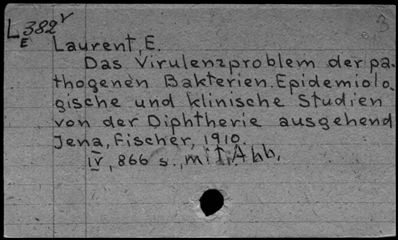 L382v
E
3
Laurent, E.
Das Virulenzproblem der pa-
thogenen Bakterien. Epidemiolo-
gische und klinische Studien
von der Diphtherie ausgehend
Jena, Fischer, 1910
IV, 866 s., mit Abb.